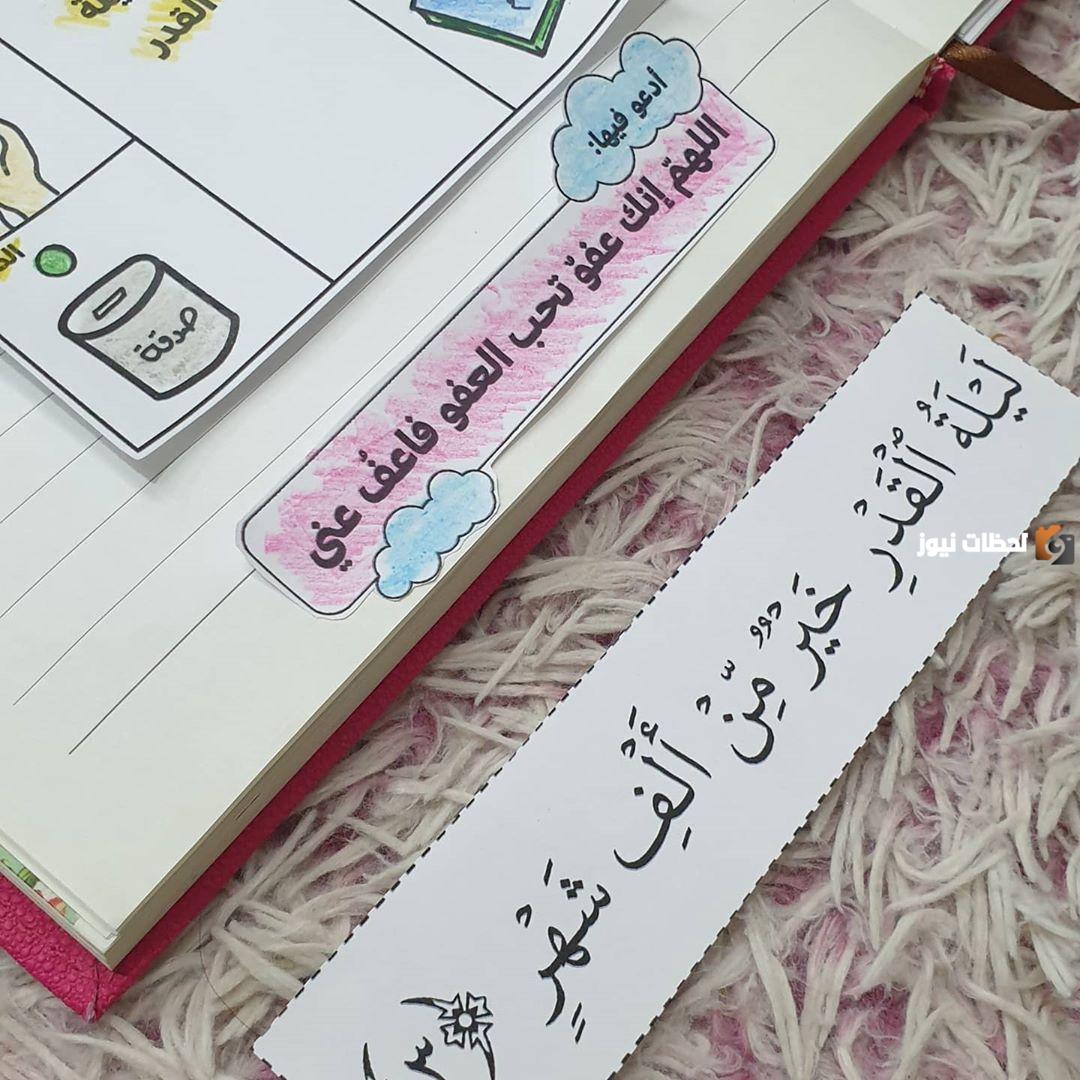 القدر
أدعو فيها:
اللهمّ إنك عفوّ تحب العفو فاعفُ عني
صدقة
لَيْلَةُ ٱلْقَدْرِ خَيْرٌ مِّنْ أَلْفِ شَهْرٍ
٣
لحظات نيوز